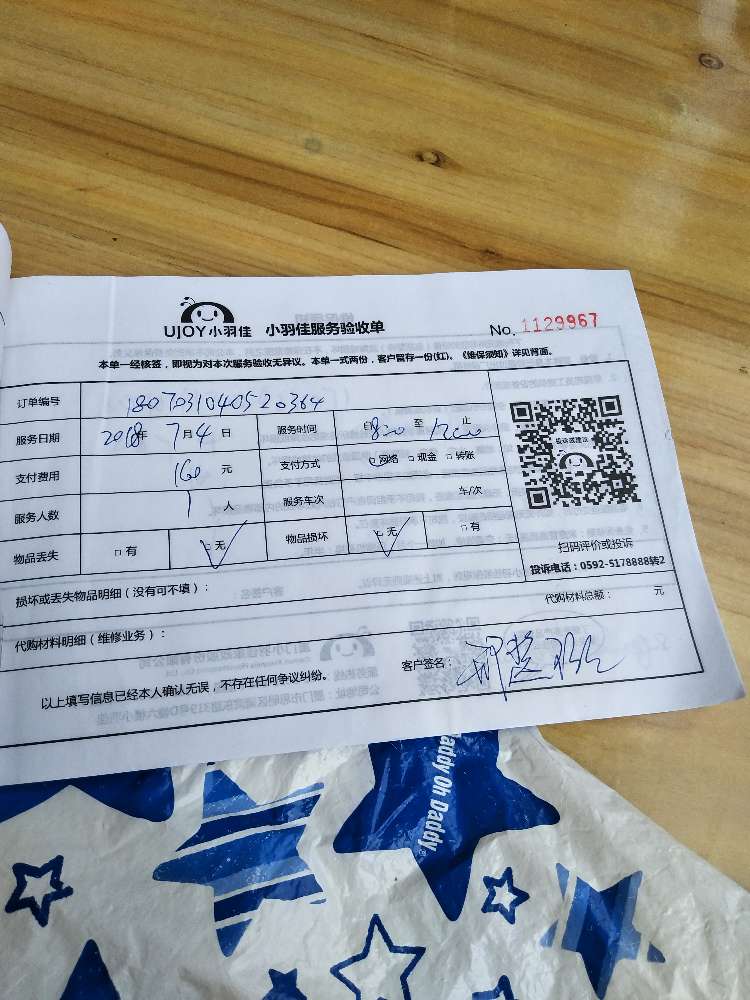 UJOY小羽佳 小羽佳服务验收单 No. 1129967
本单一经核签，即视为对本次服务验收无异议。本单一式两份，客户暂存一份(红)。《维保须知》详见背面。
订单编号 1807031040520364
服务日期 2018年 7月4日 服务时间 自 800 至 1200 止
支付费用 160 元 支付方式 □网络 □现金 □转账
服务人数 1 人 服务车次 车/次
物品丢失 □有 □无 物品损坏 □无 □有
扫码评价或投诉
投诉电话：0592-5178888转2
损坏或丢失物品明细（没有可不填）：
代购材料明细（维修业务）： 代购材料总额： 元
客户签名：
以上填写信息已经本人确认无误，不存在任何争议纠纷。
Daddy Oh Daddy